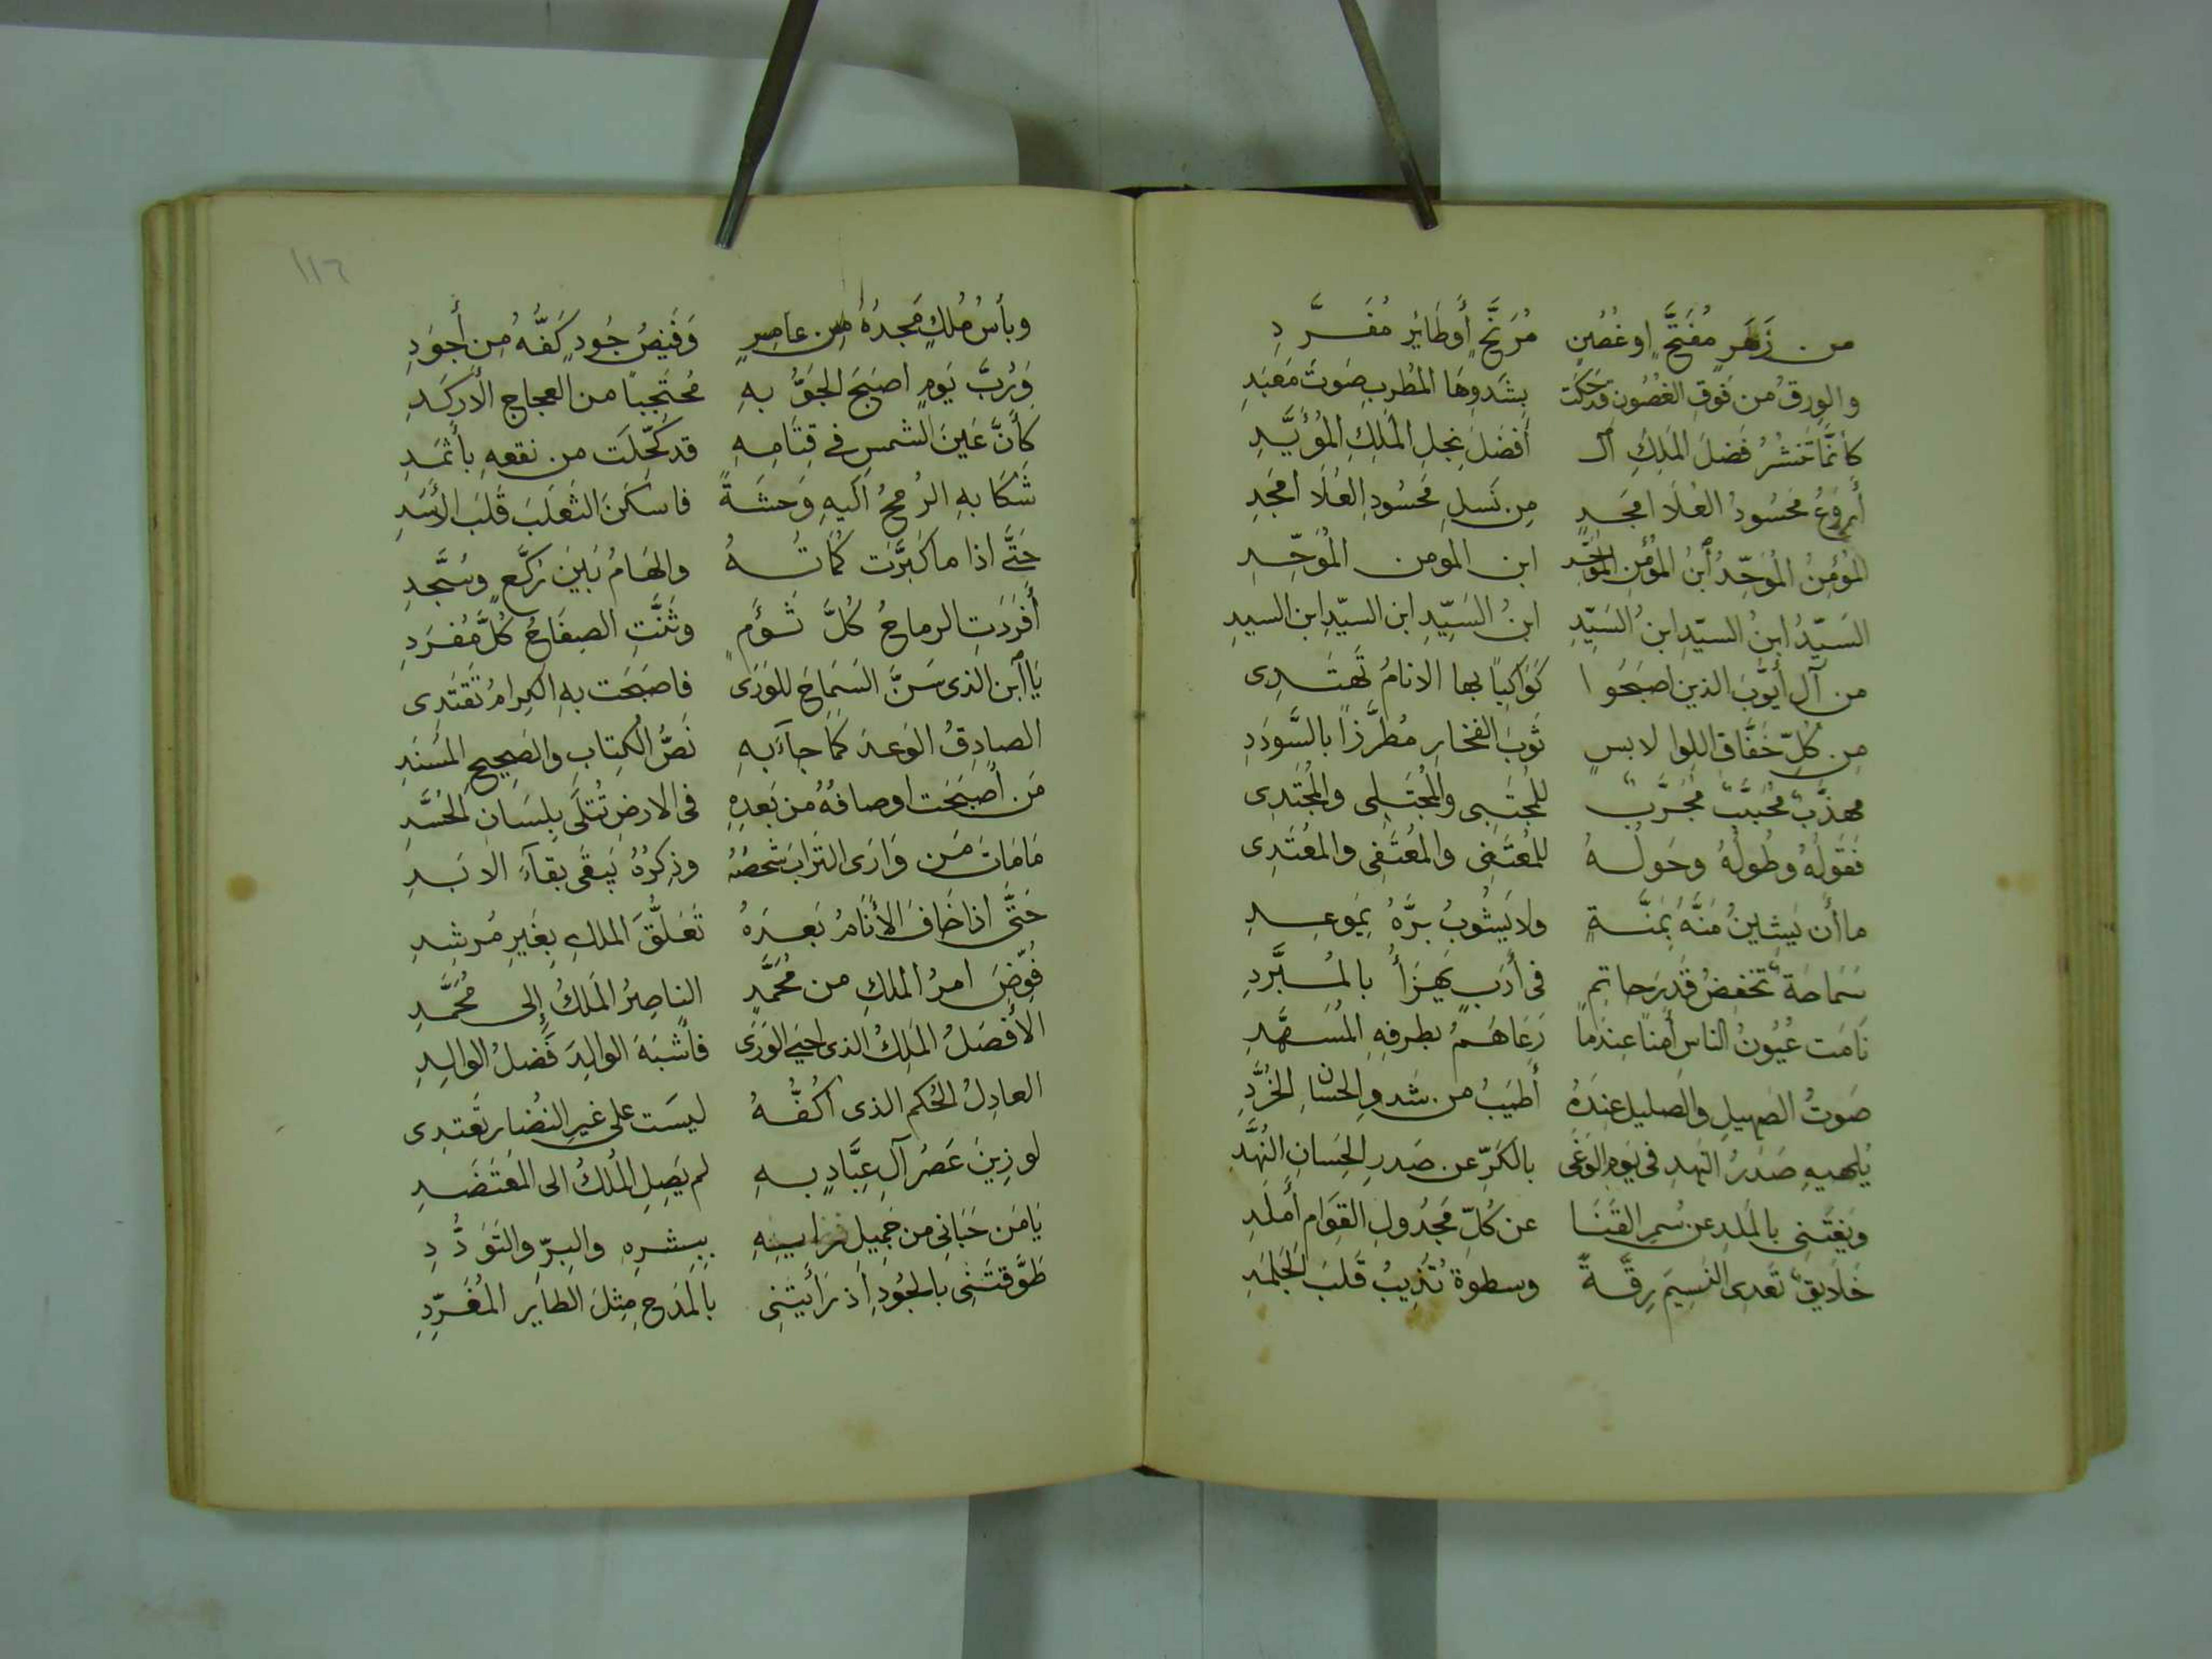 من زَهَرٍ مُفَتَّحٍ اوغُصُنٍ مُرَنَّحٍ أوطَائرٍ مُغَرَّدِ
والورقُ من فَوقِ الغُصُونِ قد حَكَت بِشَدوِهَا المُطرِبِ صَوتَ مَعبَدِ
كأنَّما تَنشُرُ فَضلَ المَلِكِ الـ أفضَلَ نجلِ المَلِكِ المُؤَيَّدِ
أَروَعُ مَحسُودُ العُلَا امجَدٍ مِن نَسلِ مَحسُودِ العُلَا امجَدِ
المُؤمِنُ المُوَحّدُ ابنُ المُؤمِن المُوَحّد ابن المومن المُوَحِّدِ
السَيّدُ ابنُ السيّدِ ابنُ السَيِّدِ ابنُ السَيِّدِ ابن السيّدِ ابن السيدِ
من آلِ أيّوبَ الذين اصبَحُوا كَوَاكِبًا بها الانامُ تَهتَدِى
مِن كُلِّ خَفَّاقِ اللوا لابسٍ ثَوبَ الفخارِ مُطَرَّزًا بالسَّودَدِ
مهذَّبٌ مُحَبَّبٌ مُجَرَّبٌ للمُجتَبِى والمُجتَلِى والمُجتَدِى
فَقَولُهُ وطُولُهُ وحَولُهُ للمُعتَفِى والمُقتَفِى والمُعتَدِى
ما أَن يَشِينُ مَنَّهُ بمَنَّةٍ ولا يَشُوبُ برَّهُ بمَوعِدِ
سَمَاحَةٌ تخفِضُ قَدرَ حاتِمٍ فى أَدَبٍ يَهزَأُ بالمُبَرَّدِ
نَامَت عُيُونُ الناسِ أمنًا عِندَما رَعَاهُمُ بطرفِهِ المُسَهَّدِ
صَوتُ الصهيلِ والصليل عِندَهُ أَطيَبُ من شَدوِ الحسانِ الخُرَّدِ
يُلهيهِ صَدرُ النَهدِ فى يَومِ الوَغَى بالكَرِّ عن صَدرِ الحِسَانِ النُهَّدِ
ويَغتَنِى بالمَلدِ عن سُمرِ القَنَا عن كُلِّ مَجدُولِ القَوَامِ أملَدِ
خَلَايقٌ تَعدى النَسِيمَ رِقَّةً وسطوةٌ تُذِيبُ قَلبَ الجَلمَدِ
١١٦
وبأسُ مُلكٍ مَجدُهُ من عامِرٍ وَفَيضُ جُودٍ كَفُّهُ مِن أجوَدِ
وَرُبَّ يَومٍ اصبَحَ الجَوُّ بهِ مُحتَجِبًا من العجاج الأركَدِ
كَأنَّ عَينَ الشمسِ فى قِتَامِهِ قد كُحِّلَت من نقعهِ بأثمَدِ
شَكَا بهِ الرُمحُ اليهِ وَحشَةً فاسكَنَ الثعلَبَ قَلبَ الأسَدِ
حَتَّى اذا ما كَبَّرَت كُمَاتُهُ والهَامُ بَينَ رُكَّعٍ وسُجَّدِ
أفرَدَتِ الرماحُ كُلَّ تَوأَمٍ وثَنَّتِ الصِفَاحُ كُلَّ مُفرَدِ
يَا ابن الذى سَنَّ السَمَاحَ للوَرَى فاصبَحَت بهِ الكِرامُ تَقتَدِى
الصادِقُ الوَعدَ كما جآءَ بهِ نَصُّ الكِتابِ والصَحِيحِ المُسنَدِ
مَن أَصبَحَت اوصافُهُ من بَعدِهِ فى الارضِ تُتلَى بلِسَانِ الحُسَّدِ
مَامَاتَ مَن وَارَى التُرَابَ شَخصُهُ وذِكرُهُ يَبقَى بقآءَ الابَدِ
حَتَّى اذا خَافَ الأنَامُ بَعدَهُ تَعَلُّقَ المُلكِ بِغَيرِ مُرشِدِ
فُوِّضَ امرُ المُلكِ من مُحَمَّدٍ الناصِرُ المَلكُ إلى مُحَمَّدِ
الأفضَلُ المَلِكُ الذى احيَى الوَرَى فأشبَهَ الوالِدَ فَضلُ الوالِدِ
العادِلُ الحُكم الذى اكُفُّهُ ليسَت على غيرِ النُضَارِ تَعتَدِى
لو زِينَ عَصرُ آلِ عبَّادٍ بهِ لم يَصِلِ المُلكُ الى المُعتَضَدِ
يَا مَن حَبَانى من جَمِيلِ ببِشرِهِ والبِرِّ والتَوَدُّدِ
طَوَّقتَنِى بالجُودِ إِذ رَأَيتَنِى بالمَدحِ مِثلَ الطايرِ المُغَرِّدِ